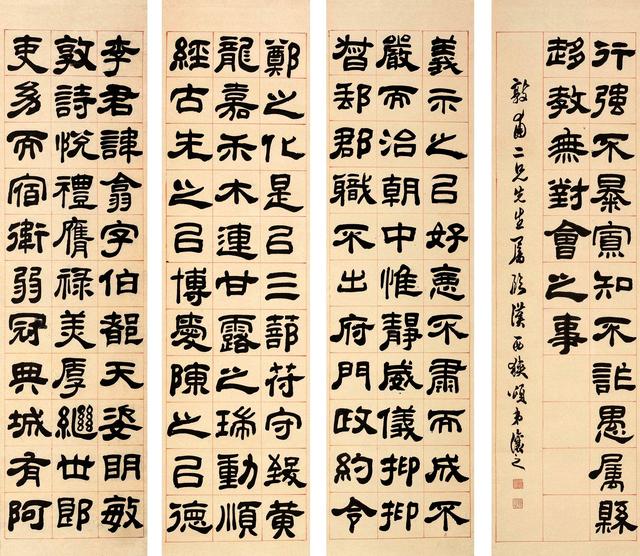 李君諱翕字伯都天姿明敏
敦詩悅禮膺祿美厚繼世郎
吏幼而宿衛弱冠典城有阿
鄭之化是㠯三莭符守致黃
龍嘉禾木連甘露之瑞動順
經古先之㠯博愛陳之㠯德
義示之㠯好惡不肅而成不
嚴而治朝中惟靜威儀抑抑
督郵郡職不出府門政約令
行强不暴寡知不詐愚属縣
趍教無對會之事
敦甫二兄先生屬臨漢西狹頌弟讓之